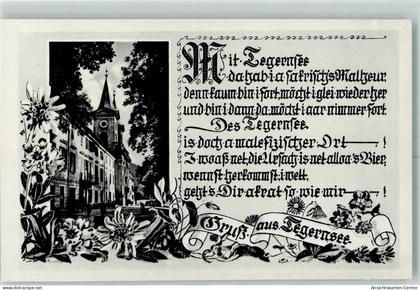 Mit Tegernsee
da hab i a sakrisch's Malheur,
denn kaum bin i fort, möcht i glei wieder her
und bin i dang, da möcht i aar nimmer fort.
Des Tegernsee,
is doch a malefizischer Ort — !
I woaß net, die Ursach is net alloa's Bier,
wennst herkommst i wett,
geht's Dir akrat so wie mir — !
Gruß aus Tegernsee
www.delcampe.net
Ansichtskarten-Center